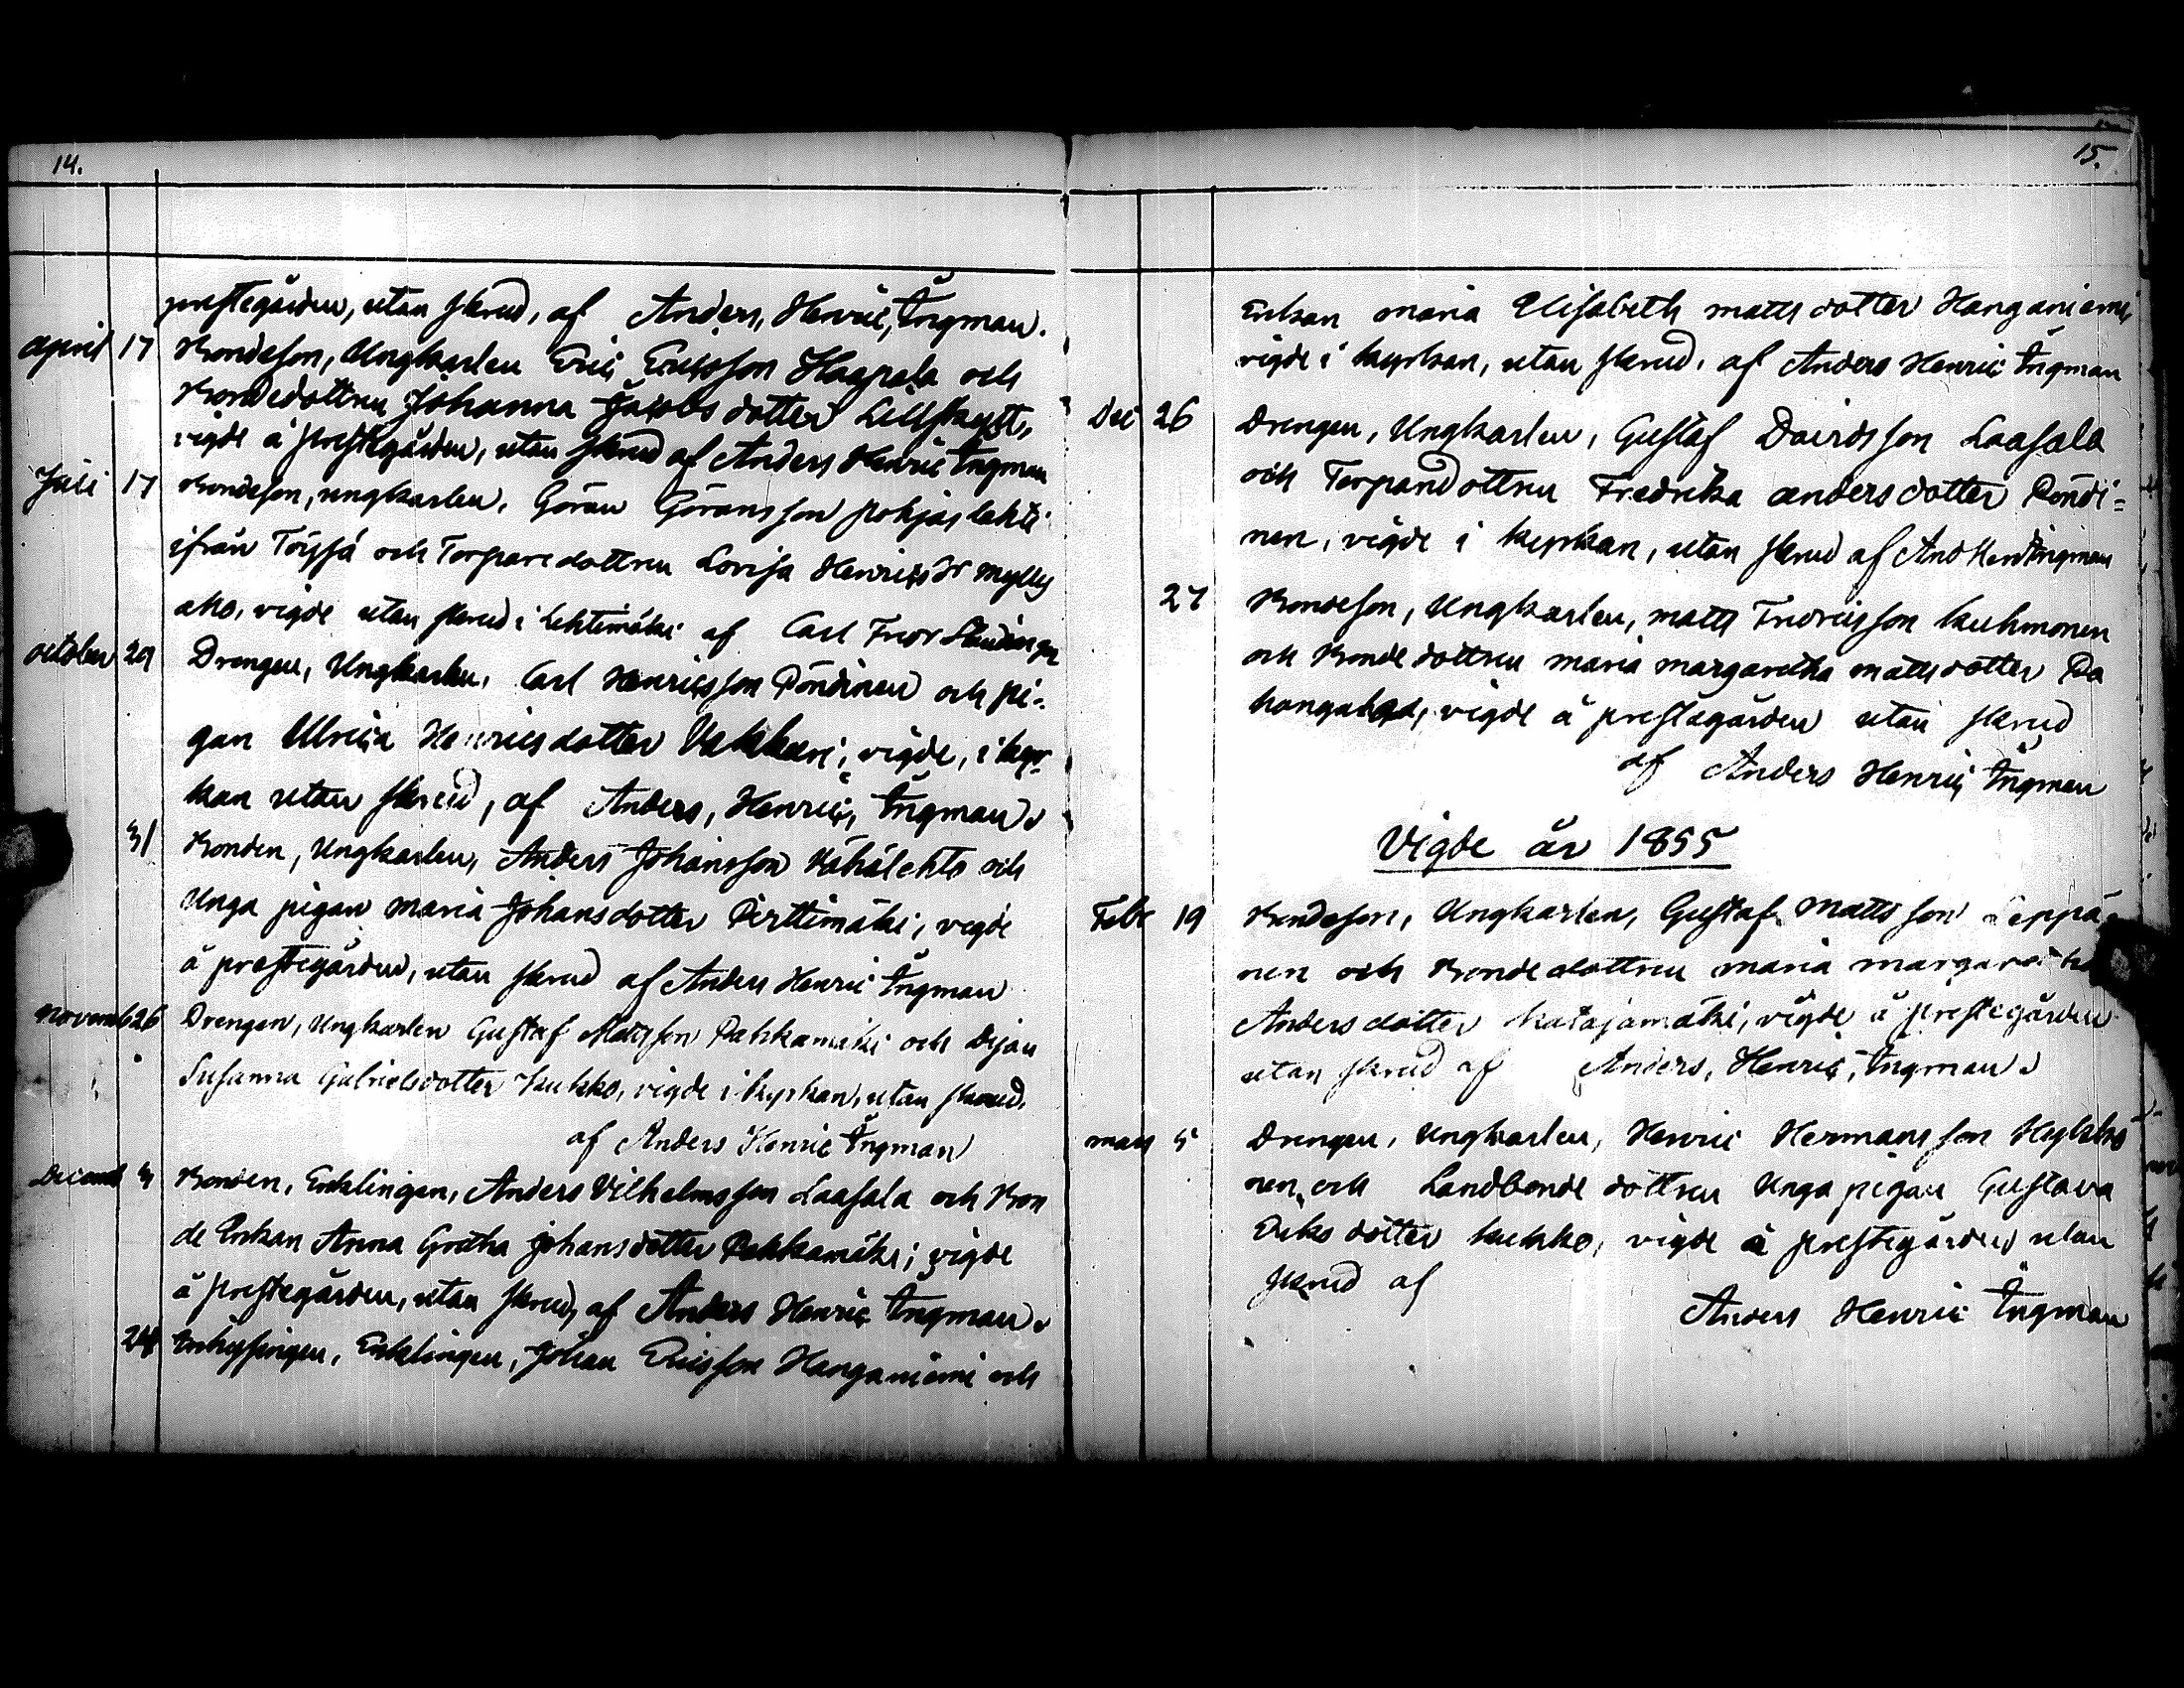 14.
prestegården, utan skrud, af Anders, Henric, Ingman.
April 17 Bondeson, Ungkarlen Eric Ericsson Haapala och
Bondedottren Johanna Jacobs dotter Lillskytt,
vigde å prestegården, utan skrud af Anders Henric Ingman
Juli 17 Bondeson, ungkarlen, Göran Göransson pohjaslahti
ifrån Töysä och Torparedottren Lovisa Henricsdr Mylly
aho, vigde utan skrud i Lehtimäki af Carl Fredr
october 29 Drengen, Ungkarlen, Carl Henricsson Pöndinen och pi-
gan Ulrica Henricsdotter Vakkuri, vigde, i kyr-
kan utan skrud, af Anders, Henric, Ingman.
31 Bonden, Ungkarlen, Anders Johansson Vähälehto och
Unga pigan maria Johansdotter Perttimäki, vigde
å prestegården, utan skrud af Anders Henric Ingman
Novemb 26 Drengen, Ungkarlen Gustaf Mattsson Pahkamäki och Pigan
Susanna Gabrielsdotter Kukko, vigde i kyrkan, utan skrud,
af Anders Henric Ingman
Decemb 3 Bonden, Enklingen, Anders Vilhelmsson Laasala och Bon
de Enkan Anna Gretha Johansdotter Pahkamäki; vigde
å prestegården, utan skrud, af Anders Henric Ingman.
24 Inhysingen, Enklingen, Johan Ericsson Hanganiemi och
15.
Enkan maria Elisabeth mattsdotter Hanganiemi,
vigde i kyrkan, utan skrud, af Anders Henric Ingman
Dec 26 Drengen, Ungkarlen, Gustaf Davidsson Laasala
och Torparedottren Fredrika andersdotter Pöndi-
nen, vigde i kyrkan, utan skrud af And Hen Ingman
27 Bondeson, Ungkarlen, matts Fredricsson kuhmonen
och Bondedottren maria margaretha mattsdotter Pa
vigde å prestegården utan skrud
af Anders Henric Ingman
Vigde år 1855
Febr 19 Bondeson, Ungkarlen, Gustaf Mattsson Leppä-
nen och Bondedottren maria margaretha
Andersdotter Katajamäki, vigde å prestegården
utan skrud af Anders, Henric, Ingman.
mars 5 Drengen, Ungkarlen, Henric Hermansson Hyk
nen, och Landbondedottren Unga pigan Gustava
Eriksdotter kukko, vigde å prestegården utan
skrud af
Anders Henric Ingman